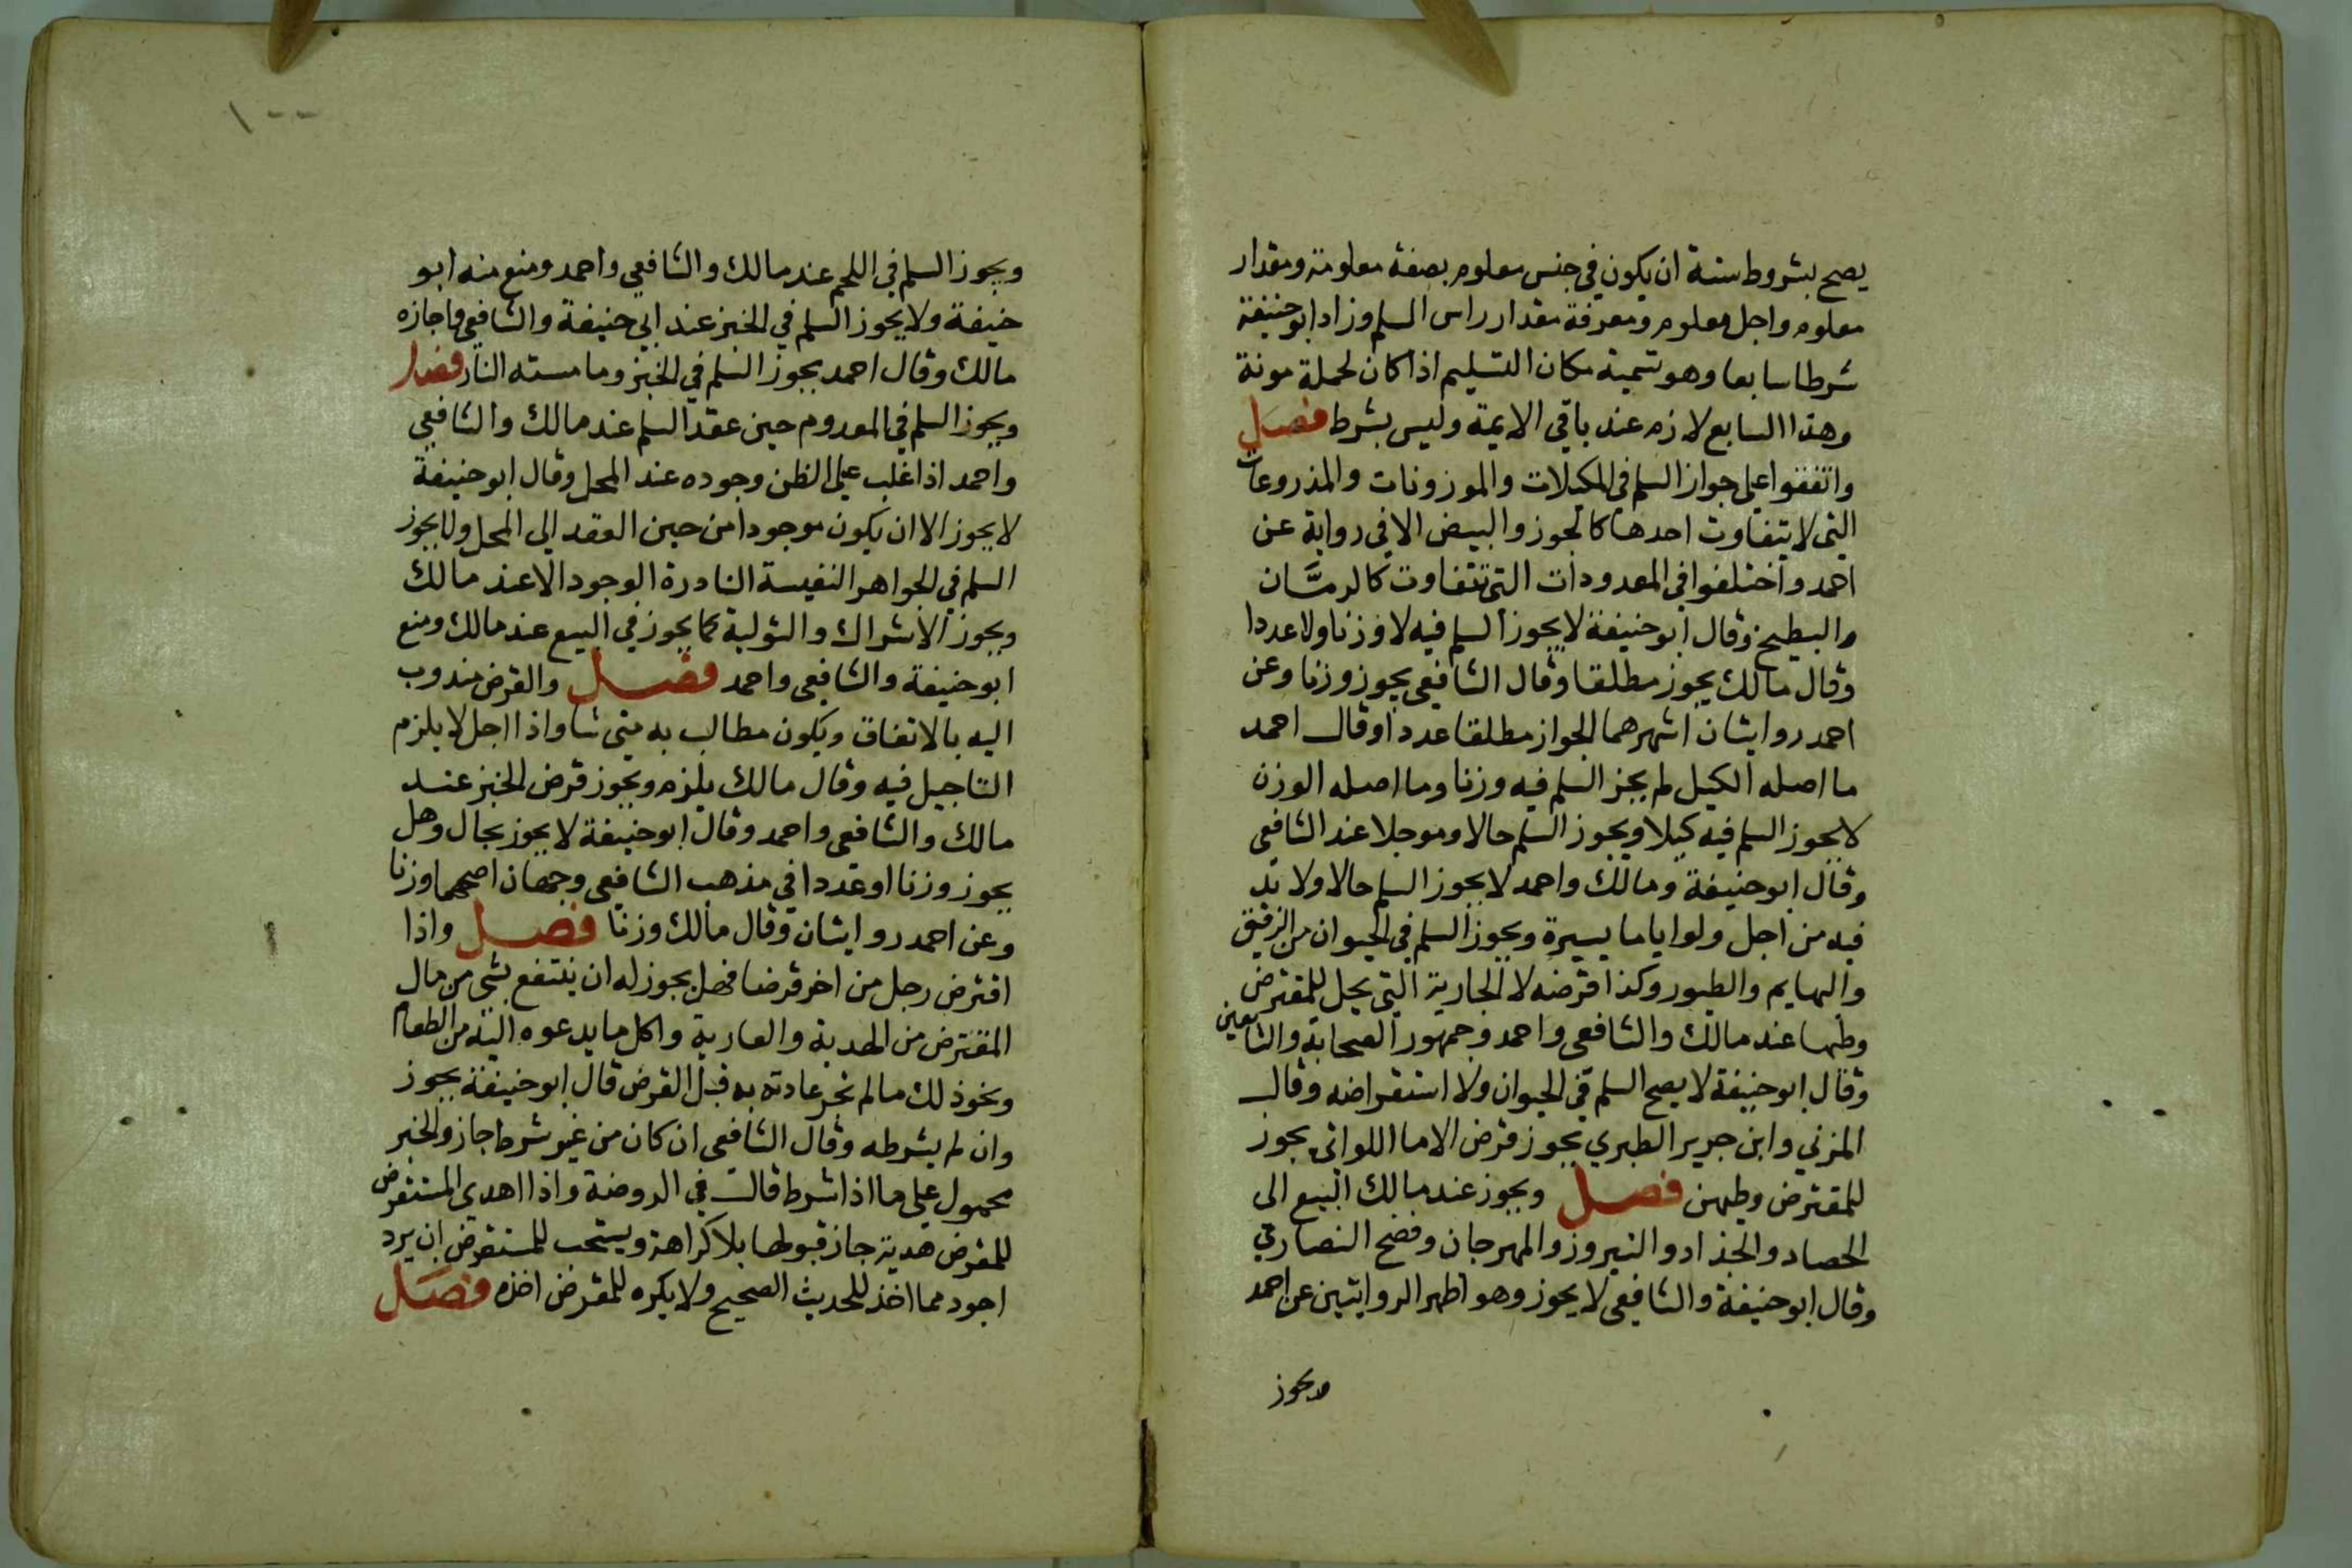 يصح بشروط ستة ان يكون في جنس معلوم بصفة معلومة ومقدار
معلوم واجل معلوم ومعرفة مقدار راس السلم وزاد ابو حنيفة
شرطا سابعا وهو تسمية مكان التسليم اذا كان لحملة مونة
وهذا السابع لازم عند باقي الايمة وليس بشرط فصل
واتفقوا على جواز السلم في المكيلات والموزونات والمذروعات
التي لا يتفاوت احدها كالجوز والبيض الا في رواية عن
احمد واختلفوا في المعدودات التي تتفاوت كالرمان
والبطيخ وقال ابو حنيفة لا يجوز السلم فيه لا وزنا ولا عددا
وقال مالك يجوز مطلقا وقال الشافعي يجوز وزنا وعن
احمد روايتان اشهرهما الجواز مطلقا عددا وقال احمد
ما اصله الكيل لم يجز السلم فيه وزنا وما اصله الوزن
لا يجوز السلم فيه كيلا ويجوز السلم حالا وموجلا عند الشافعي
وقال ابو حنيفة ومالك واحمد لا يجوز السلم حالا ولا بد
فيه من اجل ولو اياما يسيرة ويجوز السلم في الحيوان من الرقيق
والبهايم والطيور وكذا قرضه لا الجارية التي يحل للمقترض
وطيها عند مالك والشافعي واحمد وجمهور الصحابة والتابعين
وقال ابو حنيفة لا يصح السلم في الحيوان ولا استقراضه وقال
المزني وابن جرير الطبري يجوز قرض الاما اللواتي يجوز
للمقترض وطيهن فصل ويجوز عند مالك البيع الى
الحصاد والجذاد والنيروز والمهرجان وفصح النصارى
وقال ابو حنيفة والشافعي لا يجوز وهو اظهر الروايتين عن احمد
ويجوز
١٠٠
ويجوز السلم في اللحم عند مالك والشافعي واحمد ومنع منه ابو
حنيفة ولا يجوز السلم في الخبز عند ابي حنيفة والشافعي واجازه
مالك وقال احمد يجوز السلم في الخبز وما مسته النار فصل
ويجوز السلم في المعدوم حين عقد السلم عند مالك والشافعي
واحمد اذا غلب على الظن وجوده عند المحل وقال ابو حنيفة
لا يجوز الا ان يكون موجودا من حين العقد الى المحل ولا يجوز
السلم في الجواهر النفيسة النادرة الوجود الا عند مالك
ويجوز الاشراك والتولية كما يجوز في البيع عند مالك ومنع
ابو حنيفة والشافعي واحمد فصل والقرض مندوب
اليه بالاتفاق ويكون مطالب به متى شا واذا اجل لا يلزم
التاجيل فيه وقال مالك يلزم ويجوز قرض الخبز عند
مالك والشافعي واحمد وقال ابو حنيفة لا يجوز بحال وهل
يجوز وزنا او عددا في مذهب الشافعي وجهان اصحهما وزنا
وعن احمد روايتان وقال مالك وزنا فصل واذا
اقترض رجل من اخر قرضا فهل يجوز له ان ينتفع بشي من مال
المقترض من الهدية والعارية واكل ما يدعوه اليه من الطعام
ونحو ذلك ما لم تجر عادته به قبل القرض قال ابو حنيفة يجوز
وان لم يشرطه وقال الشافعي ان كان من غير شرط جاز والخبر
محمول على ما اذا شرط قال في الروضة واذا اهدى المستقرض
للمقرض هدية جاز قبولها بلا كراهة ويستحب للمستقرض ان يرد
اجود مما اخذ للحديث الصحيح ولا يكره للمقرض اخذه فصل